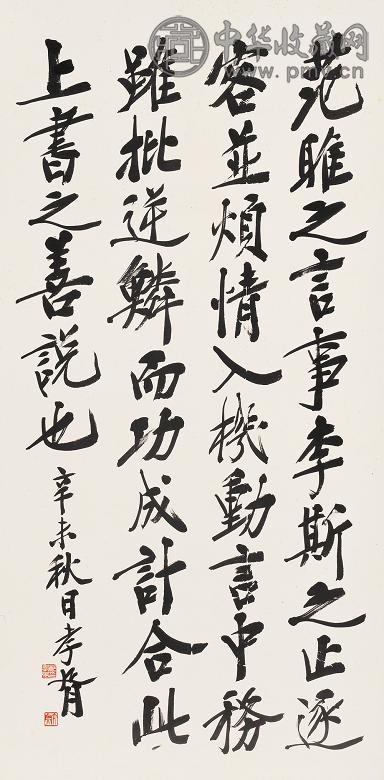 范雎之言事李斯之止逐
客並煩情入機動言中務
雖批逆鱗而功成計合此
上書之善說也
辛未秋日孝胥
中华收藏网